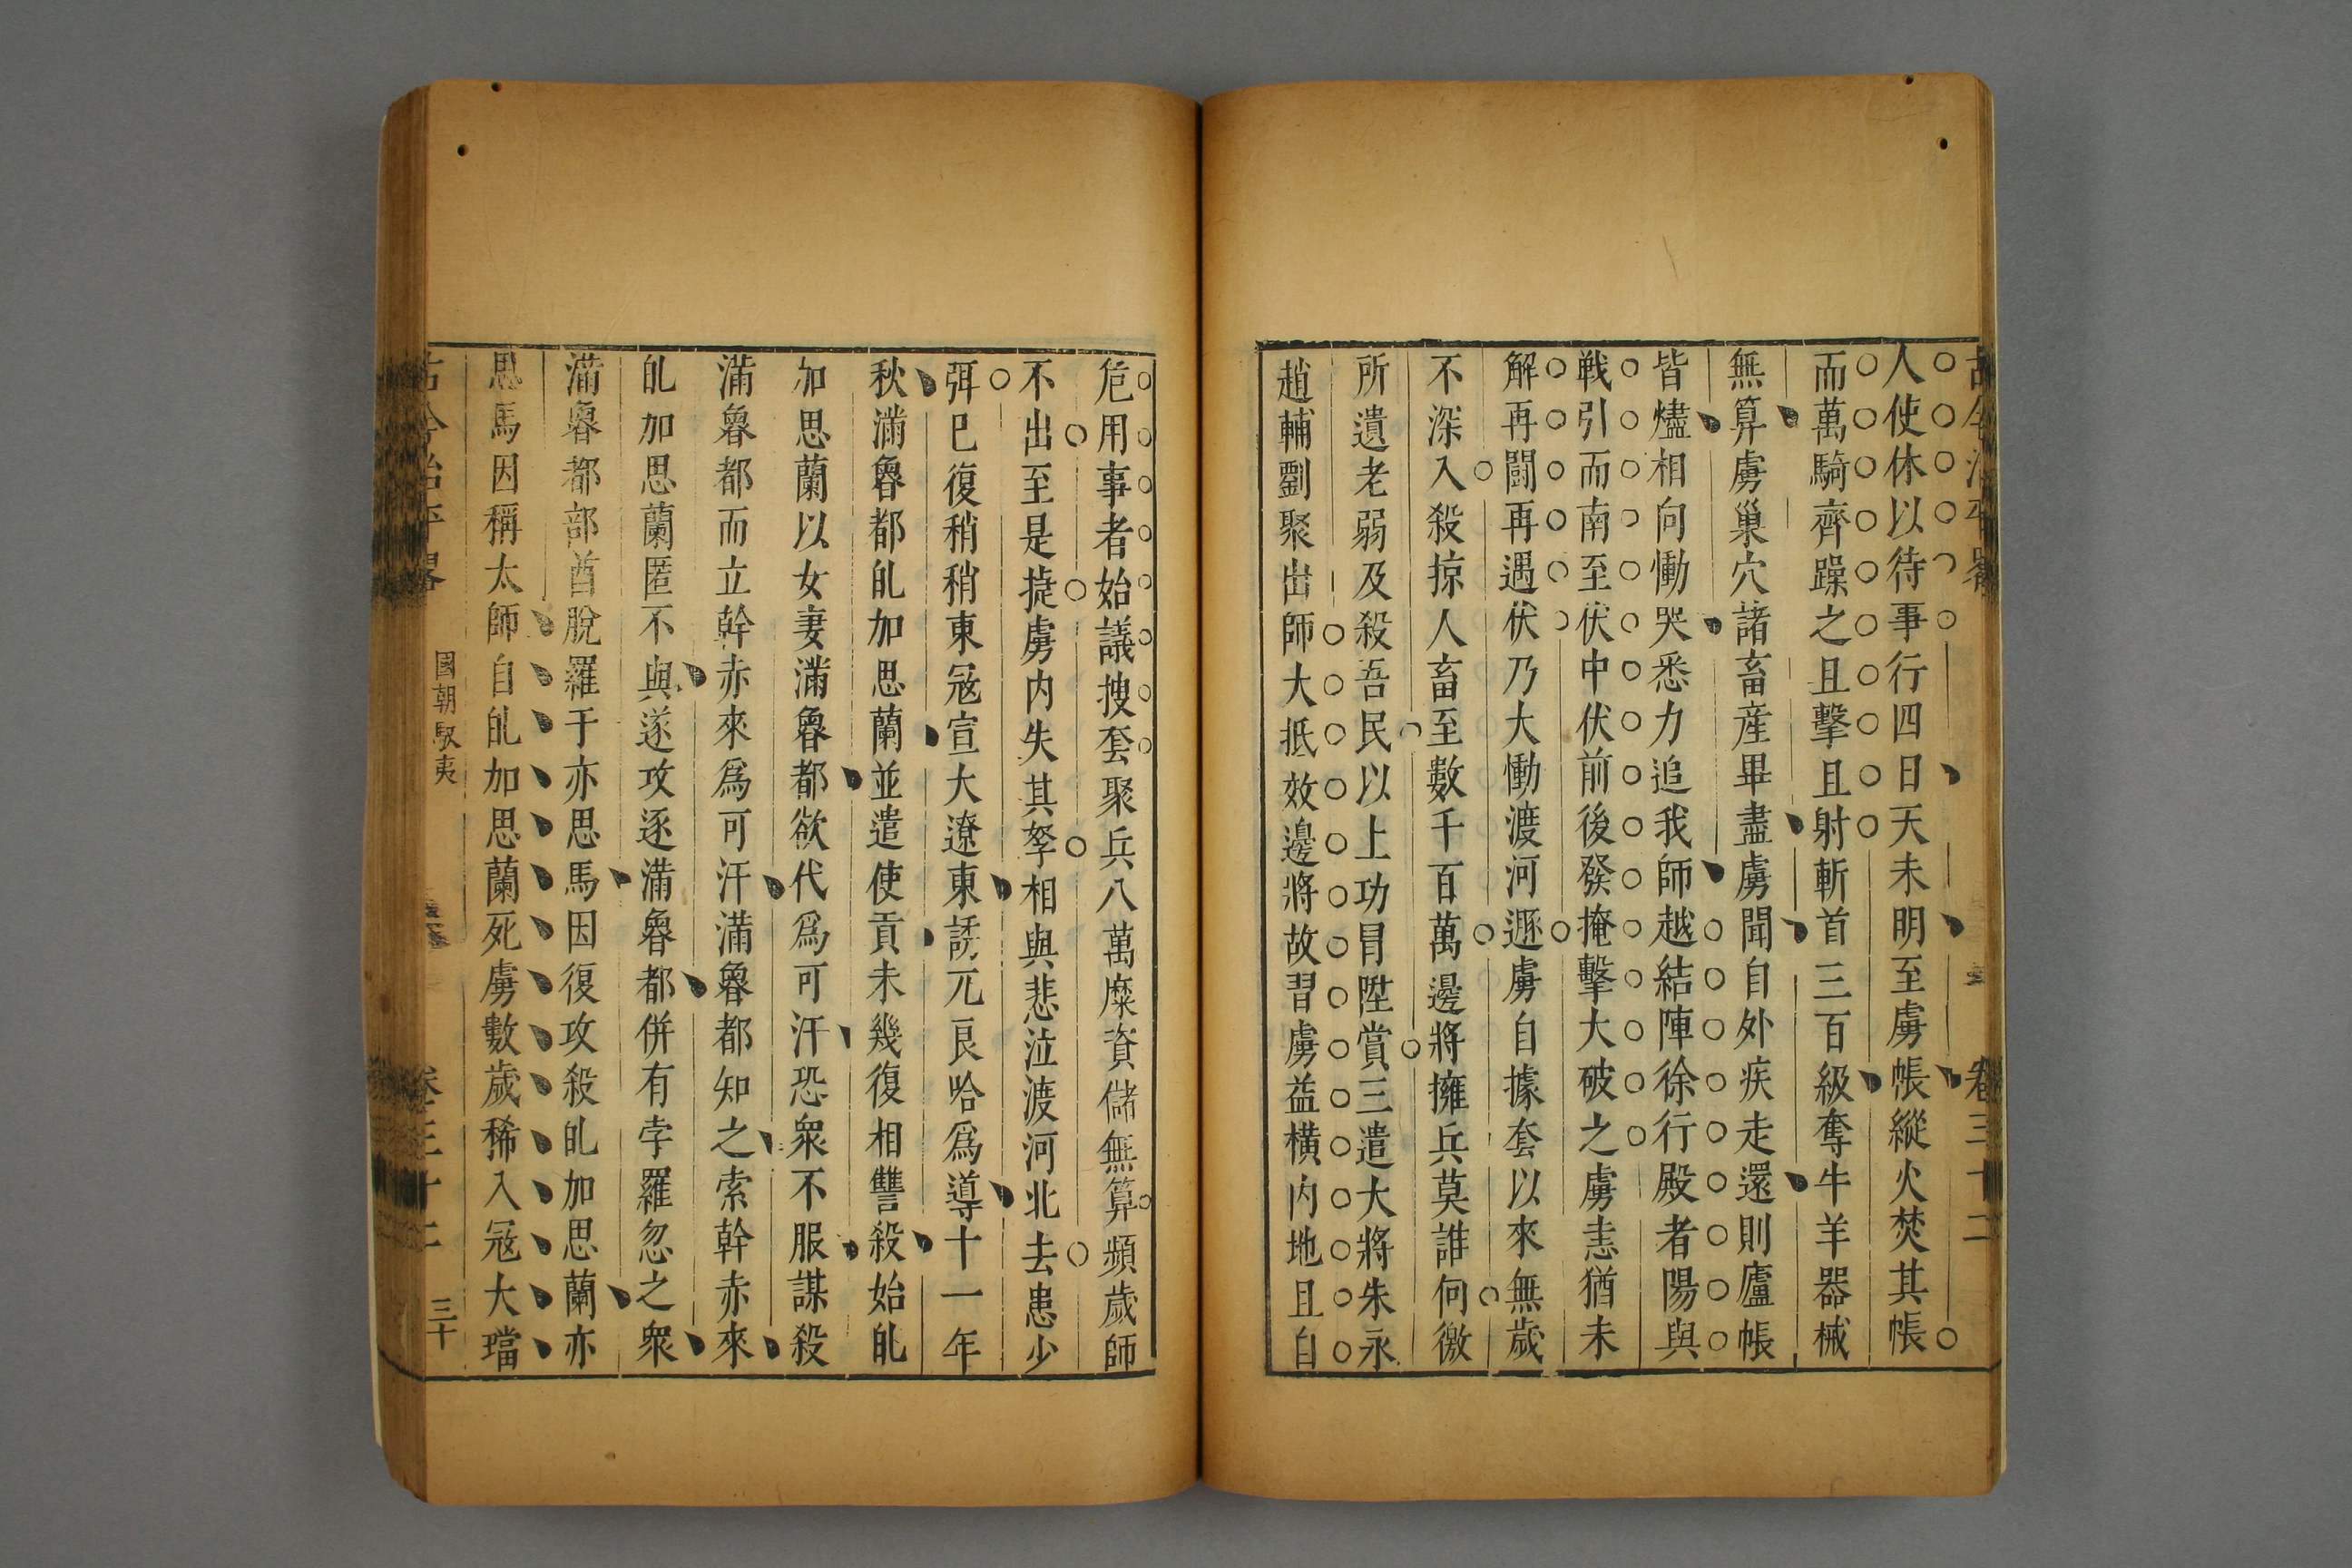 人使休以待事行四日天未明至虜帳縱火焚其帳
而萬騎齊躁之且擊且射斬首三百級奪牛羊器械
無算虜巢穴諸畜産畢盡虜聞自外疾走還則廬帳
皆燼相向慟哭悉力追我師越結陣徐行殿者陽與
戰引而南至伏中伏前後發掩擊大破之虜恚猶未
解再闘再遇伏乃大慟渡河遯虜自據套以來無歲
不深入殺掠人畜至數千百萬邊將擁兵莫誰何徼
所遺老弱及殺吾民以上功冒陞賞三遣大將朱永
趙輔劉聚出師大抵效邊將故習虜益橫内地且自
卷三十二
危用事者始議搜套聚兵八萬糜資儲無算頻歲師
不出至是㨗虜内失其孥相與悲泣渡河北去患少
弭巳復稍稍東冦宣大遼東誘兀良哈爲導十一年
秋滿魯都癿加思蘭並遣使貢未幾復相讐殺始癿
加思蘭以女妻滿魯都欲代爲可汗恐衆不服謀殺
滿魯都而立幹赤來爲可汗滿魯都知之索幹赤來
癿加思蘭匿不與遂攻逐滿魯都併有孛羅忽之衆
滿魯都部酋脫羅于亦思馬因復攻殺癿加思蘭亦
思馬因稱太師自癿加思蘭死虜數歲稀入冦大璫
古今治平畧
國朝馭夷
卷三十二
三十